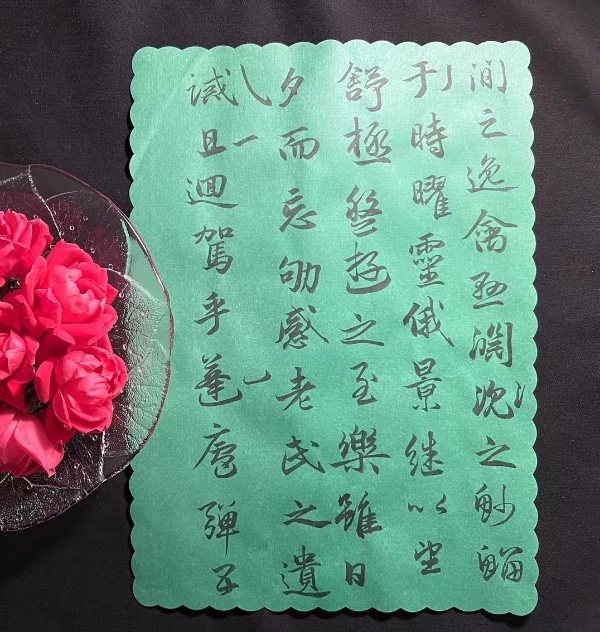 間之逸禽懸淵沈之魦鰡
于時曜靈俄景継以望
舒極盤遊之至樂雖日
夕而忘劬感老氏之遺
誡且迴駕乎蓬廬彈五